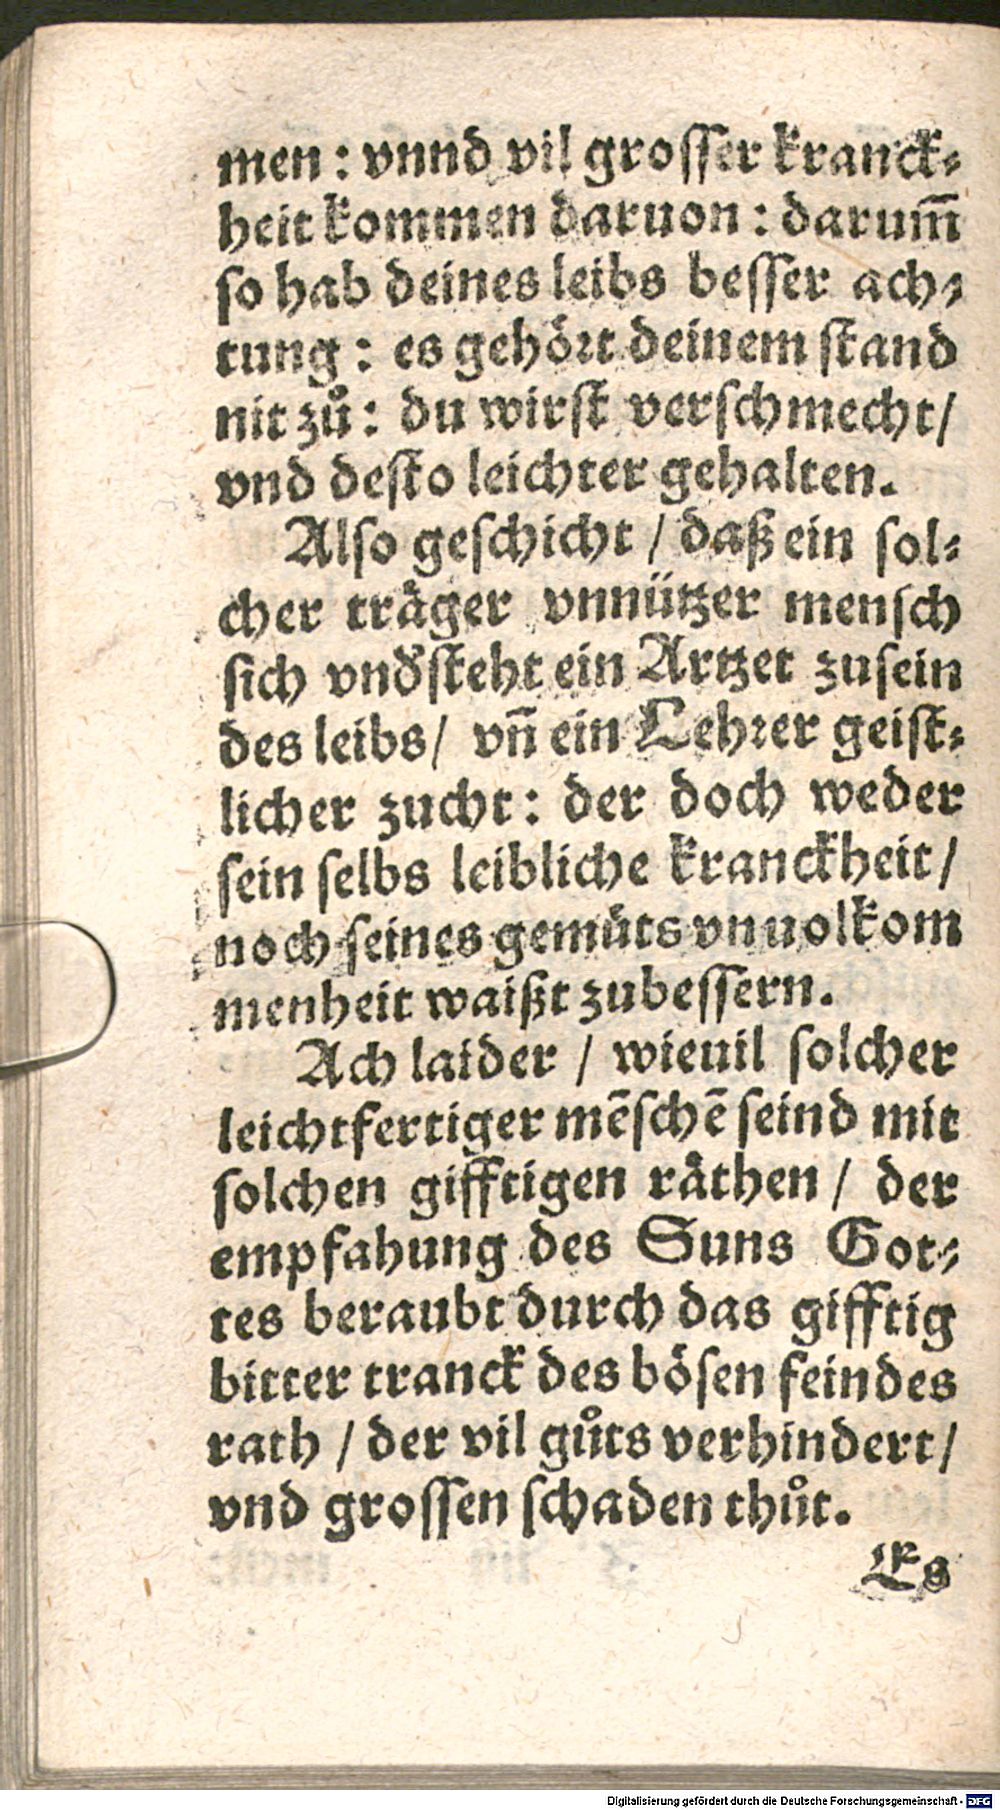 men: vnnd vil grosser kranck-
heit kommen daruon: darum̃
so hab deines leibs besser ach-
tung: es gehört deinem stand
nit zů: du wirst verschmecht/
vnd desto leichter gehalten.
Also geschicht / daß ein sol-
cher träger vnnützer mensch
sich vnd̕steht ein Artzet zusein
des leibs/ vñ ein Lehrer geist-
licher zucht: der doch weder
sein selbs leibliche kranckheit/
noch seines gemüts vnuolkom
menheit waißt zubessern.
Ach laider / wieuil solcher
leichtfertiger mẽschẽ seind mit
solchen gifftigen räthen / der
empfahung des Suns Got-
tes beraubt durch das gifftig
bitter tranck des bösen feindes
rath / der vil gůts verhindert/
vnd grossen schaden thůt.
Es
Digitalisierung gefördert durch die Deutsche Forschungsgemeinschaft - DFG